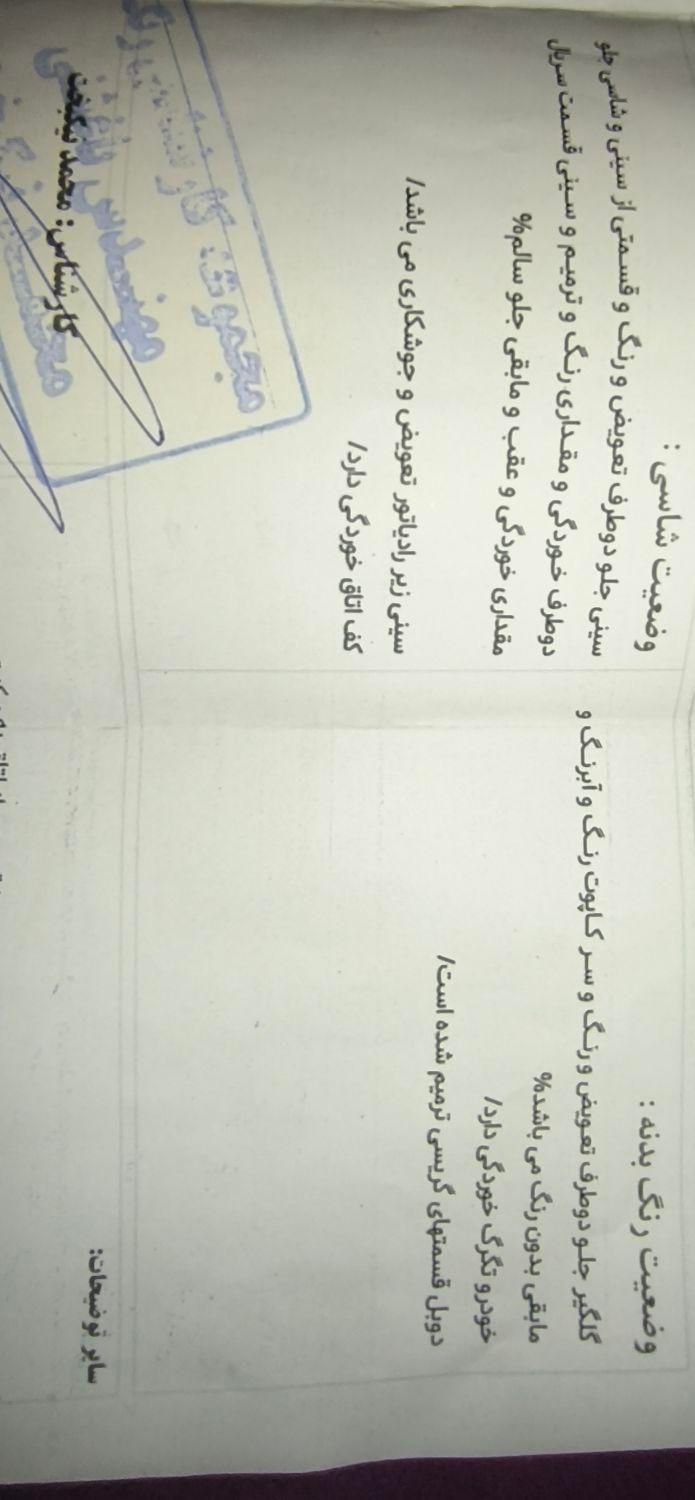 وضعیت رنگ بدنه :
گلگیر جلو دوطرف تعویض و رنگ و سر کاپوت رنگ و آبرنگ و
مابقی بدون رنگ می باشد%
خودرو تگرگ خوردگی دارد/
دوبل قسمتهای گریسی ترمیم شده است/
وضعیت شاسی :
سینی جلو دوطرف تعویض و رنگ و قسمتی از سینی و شاسی جلو
دوطرف خوردگی و مقداری رنگ و ترمیم و سینی قسمت سریال
مقداری خوردگی و عقب و مابقی جلو سالم%
سینی زیر رادیاتور تعویض و جوشکاری می باشد/
کف اتاق خوردگی دارد/
سایر توضیحات:
کارشناس: محمد نیکبخت